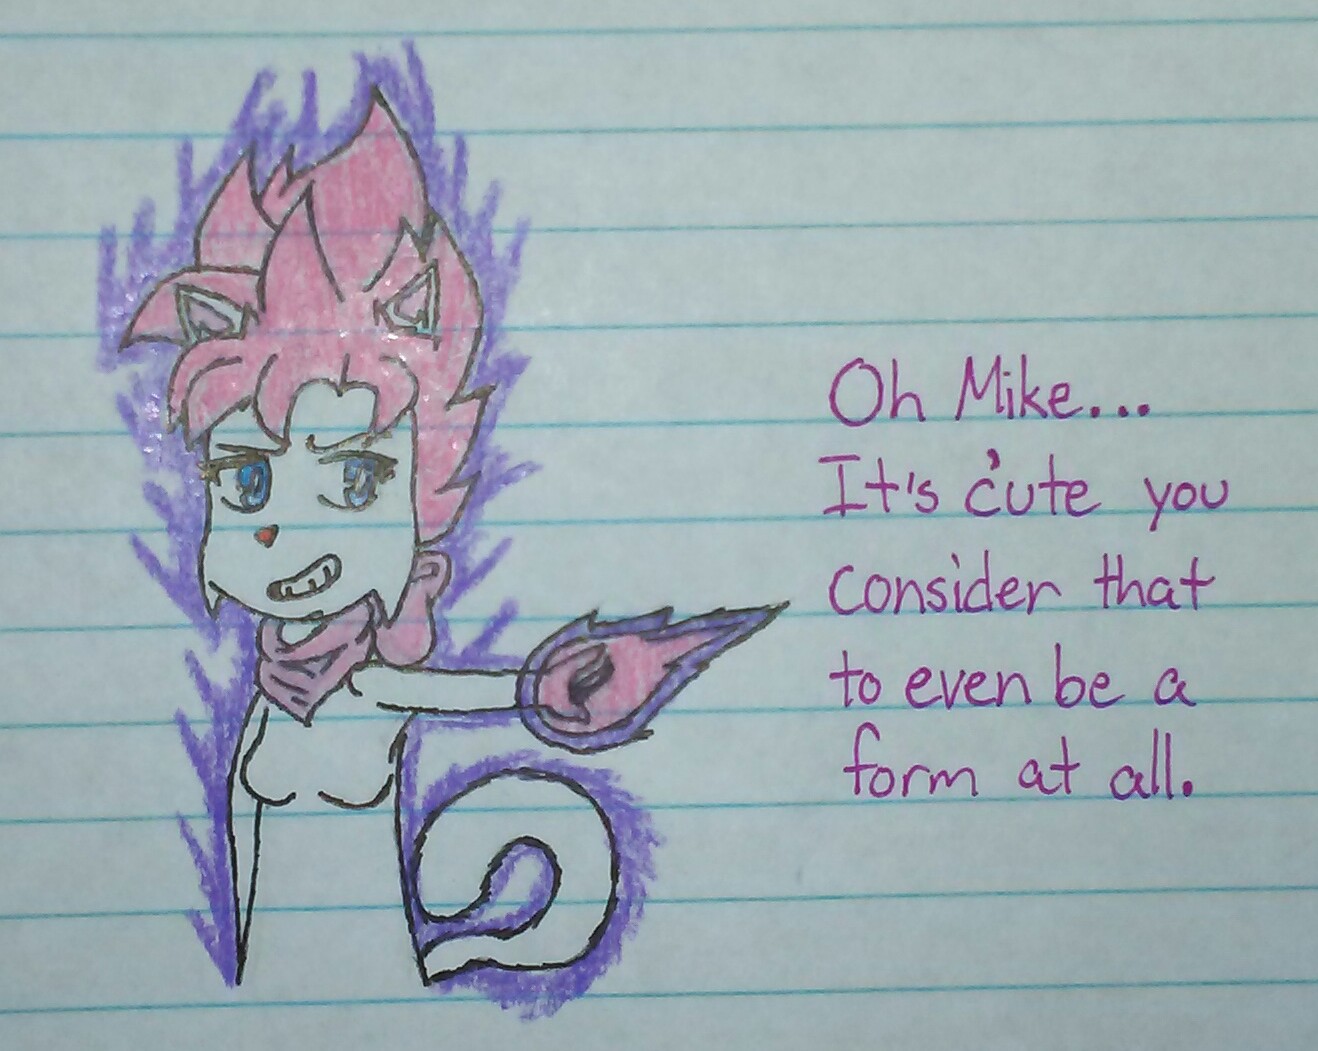 Oh Mike...
It's cute you
consider that
to even be a
form at all.